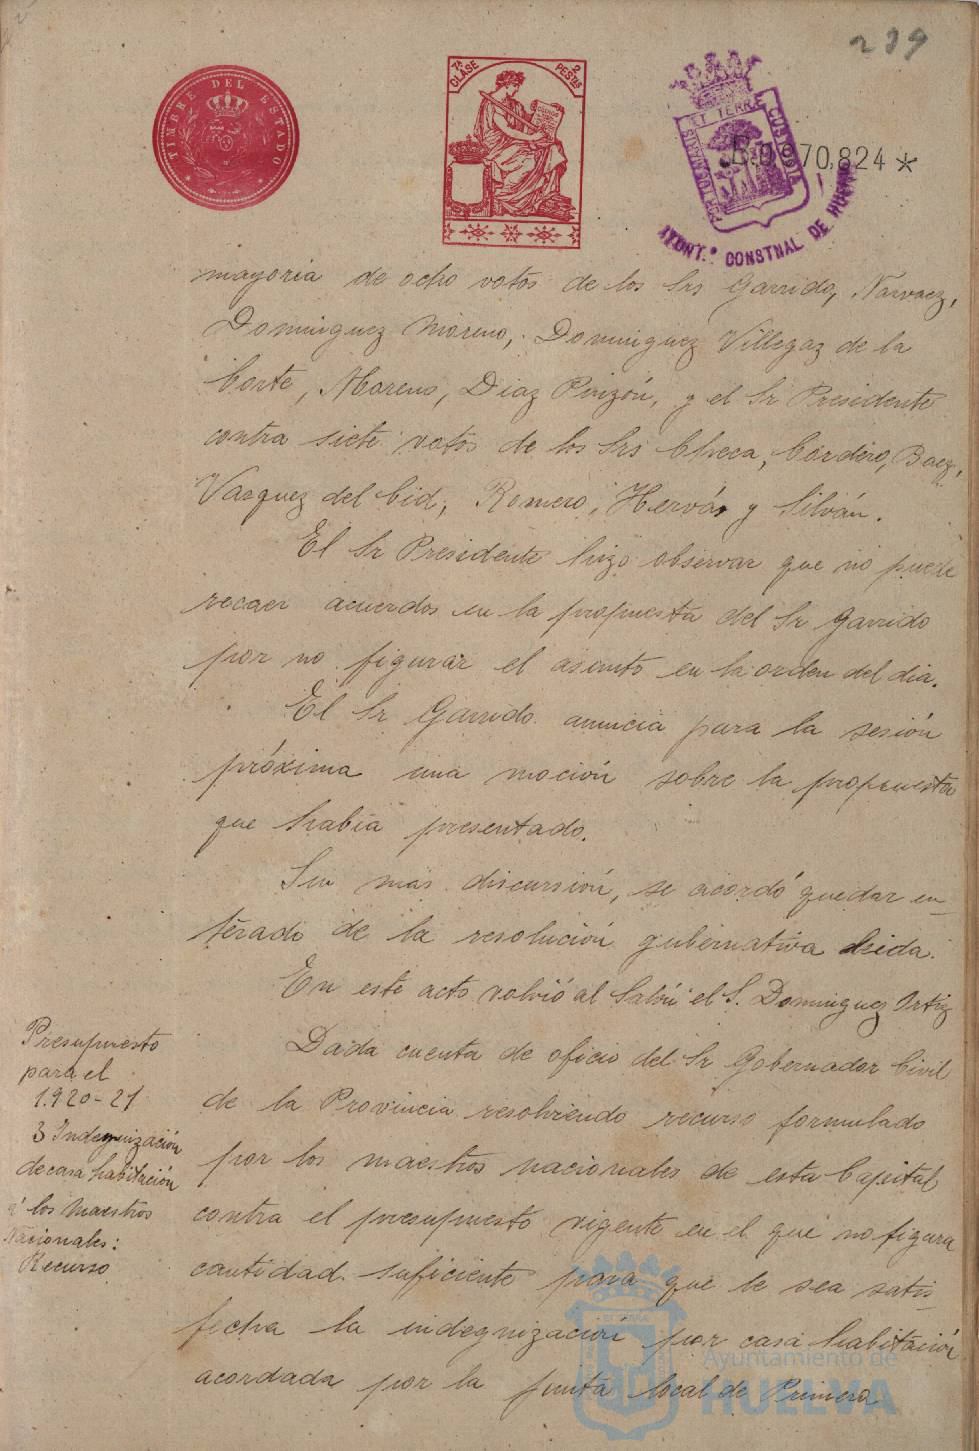 239
TIMBRE DEL ESTADO
7ª CLASE
2 PESTAS
ET TERRÆ CUSTODIA
PORTUS MARIS
B.0.970,824 *
AYUNT.º CONSTNAL DE HUELVA
mayoria de ocho votos de los Srs Garrido, Narvaez,
Dominguez Moreno, Dominguez Villegaz de la
Corte, Moreno, Diaz Pinzón, y el Sr Presidente
contra siete votos de los Srs Checa, Cordero, Baez,
Vazquez del Cid, Romero, Hervás y Silván.
El Sr Presidente hizo observar que no puede
recaer acuerdos en la propuesta del Sr Garrido
por no figurar el asunto en la orden del dia.
El Sr Garrido anuncia para la sesión
próxima una moción sobre la propuesta
que habia presentado.
Sin mas discursión, se acordó quedar en-
terado de la resolución gubernativa leida.
En este acto volvió al Salón el S. Dominguez Ortiz
Presupuesto
para el
1.920-21
3 Indegnización
de casa habitación
a los Maestros
Nacionales:
Recurso
Dada cuenta de oficio del Sr Gobernador Civil
de la Provincia resolviendo recurso formulado
por los maestros nacionales de esta Capital
contra el presupuesto vigente en el que no figura
cantidad suficiente para que le sea satis-
fecha la indegnización por casa habitación
acordada por la junta local de Primera
Ayuntamiento de
HUELVA